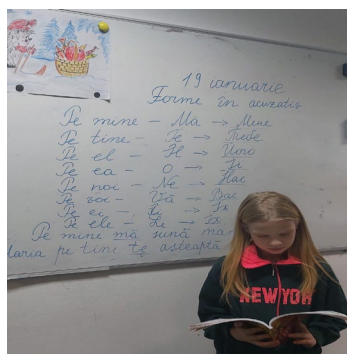 19 ianuarie
Forme în acuzativ
Pe mine – Ma → Mine
Pe tine – Te → Тебе
Pe el – Îl → Його
Pe ea – O → Її
Pe noi – Ne → Нас
Pe voi – Vă → Вас
Pe ei – Îi → Їх
Pe ele – Le → Їх
Pe mine mă sună
Maria pe tine te așteaptă
NEW YOR